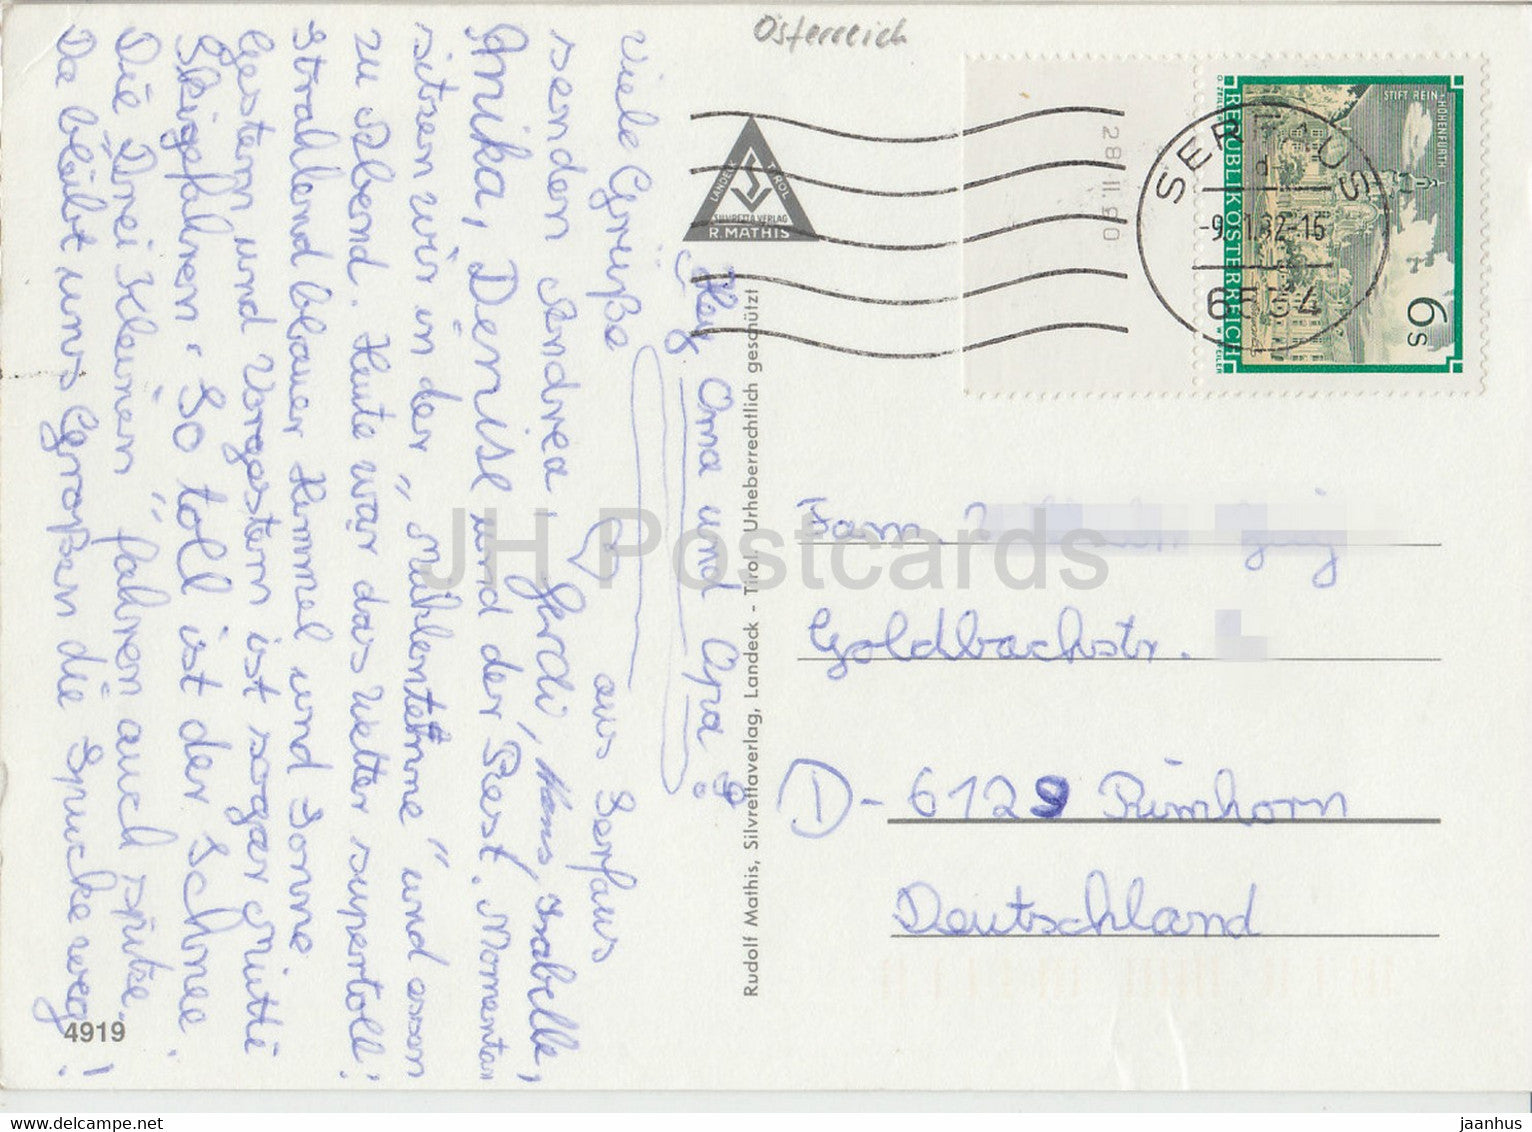 Österreich
Hey Oma und Opa!
Viele Grüße aus Serfaus
senden Andrea, Gerdi, Hans, Isabelle,
Anika, Denise und der Rest. Momentan
sitzen wir in der „Mühlentenne" und essen
zu Abend. Heute war das Wetter supertoll:
Strahlend blauer Himmel und Sonne.
Gestern und Vorgestern ist sogar Mutti
Skigefahren. So toll ist der Schnee.
Die „Drei Kleinen" fahren auch spitze.
Da bleibt uns Großen die Spucke weg!
4919
LANDECK TIROL
SILVRETTA VERLAG
R. MATHIS
Rudolf Mathis, Silvrettaverlag, Landeck - Tirol. Urheberrechtlich geschützt
28 II.90
SERFAUS
d
6534
STIFT REIN-HOHENFURTH
REPUBLIK ÖSTERREICH
6s
Fam.
Goldbachstr.
D - 6129 Rimhorn
Deutschland
JH Postcards
hipstamp.com/store/jaanhus